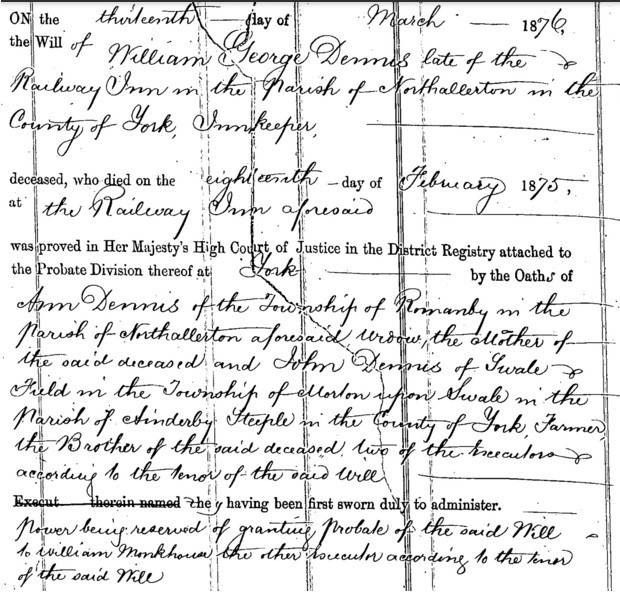 ON the thirteenth day of March 1876,
the Will of
William George Dennis late of the
Railway Inn in the Parish of Northallerton in the
County of York, Innkeeper,
deceased, who died on the eighteenth day of February 1875,
at the Railway Inn aforesaid
was proved in Her Majesty's High Court of Justice in the District Registry attached to
the Probate Division thereof at York by the Oaths of
Ann Dennis of the Township of Romanby in the
Parish of Northallerton aforesaid Widow, the Mother of
the said deceased and John Dennis of Swale
Field in the Township of Morton upon Swale in the
Parish of Ainderby Steeple in the County of York, Farmer,
the Brother of the said deceased two of the Executors
according to the tenor of the said Will
Execut therein named they having been first sworn duly to administer.
Power being reserved of granting Probate of the said Will
to William Monkhouse the other Executor according to the tenor
of the said Will